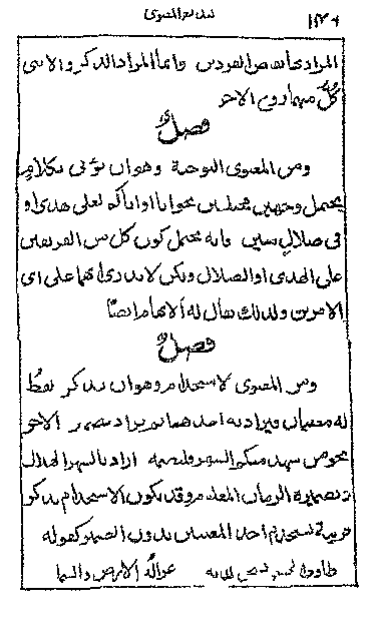 المعنوى
المراد عات من الفردس وانما المراد الذكر والانثى
كل منهما زوج الاخر
فصل
ومن المعنوى التوجيه وهو ان يؤتى بكلام
يحتمل وجهين مختلفين نحو انا او اياكم لعلى هدى او
فى ضلال مبين فانه يحتمل كون كل من الفريقين
على الهدى او الضلال ولكن لا ندرى ايهما على اى
الامرين ولذلك يقال له الابهام ايضا
فصل
ومن المعنوى الاستخدام وهو ان يذكر لفظ
له معنيان فيراد به احدهما ثم يراد بضميره الاخر
نحو من شهد منكم الشهر فليصمه اراد بالشهر الهلال
وبضميره الزمان المعلوم وقد يكون الاستخدام بذكر
قرينة تستخدم احد المعنيين بدون الضمير كقوله
الارض والسما